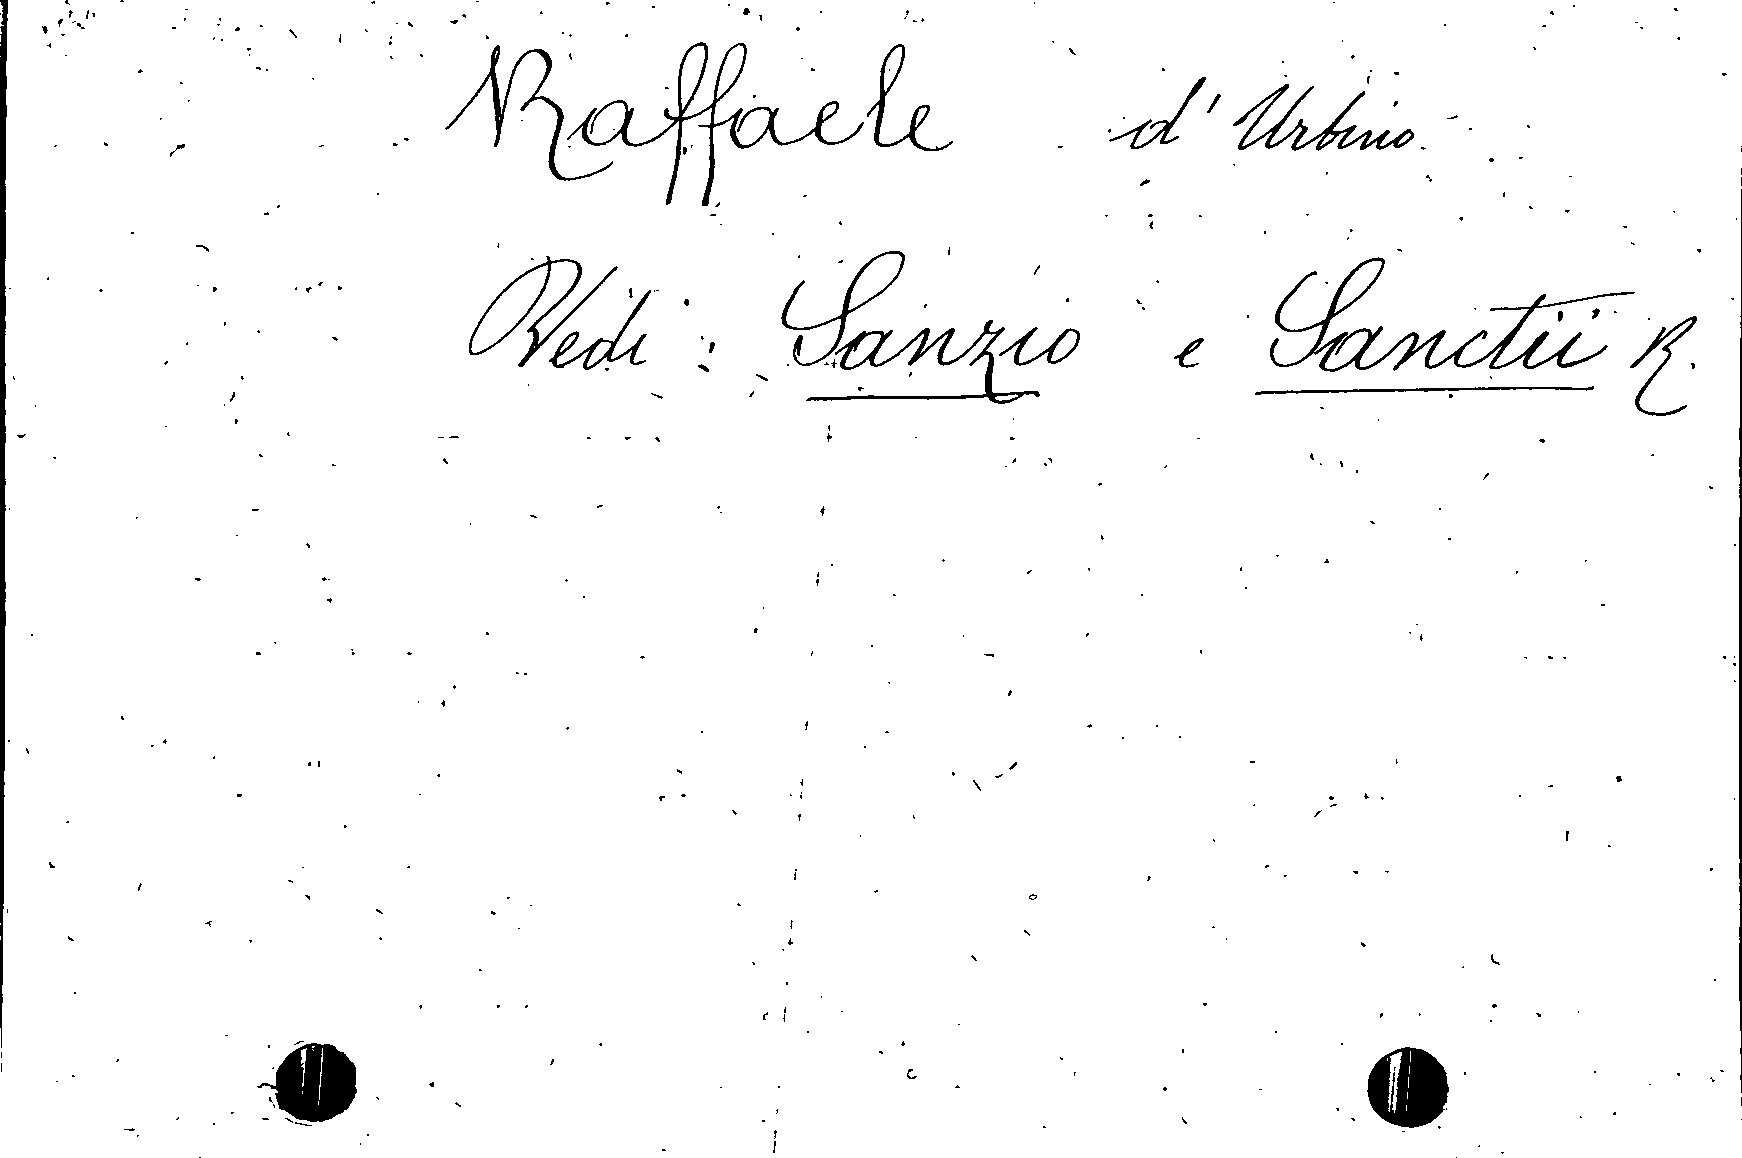 Raffaele d'Urbino
Vedi: Sanzio e Sanctii R.